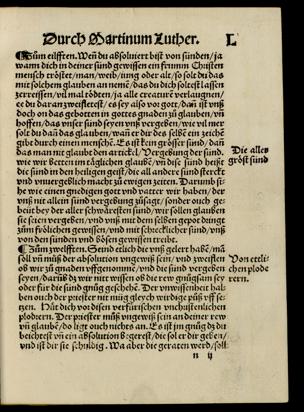 Durch Martinum Luther.
L
Zum eilfften. Wen̄ du absoluiert bist von sunden/ ja
wann dich in deiner sund gewissen ein frumm Christen
mensch tröstet/ man/ weib/ jung oder alt/ so solt du das
mit solchem glauben an nemē/ das du dich soltest lassen
zerreissen/ vil mal tödten/ ja alle creatur verlaugnen/
ee du daran zweifletest/ es sey also vor gott/ dañ ist vnß
doch on das gebotten in gottes gnaden zu glauben/ vñ
hoffen/ das vnser sund seyen vnß vergeben/ wie vil mer
solt du dañ das glauben/ wañ er dir des selbē ein zeichē
gibt durch einen menschē. Es ist kein grösser sund/ dañ
das man nit glaubt den artickel/ Vergebung der sund.
wie wir betten im täglichen glaubē/ vñ dise sund heißt
die sund in den heiligen geist/ die all andere sund sterckt
vnd vnuergeblich macht zu ewigen zeiten. Darumb si-
he wie einen gnedigen gott vnd vatter wir haben/ der
vnß nit allein sund vergebung zusagt/ sonder auch ge-
beüt bey der aller schwäresten sund/ wir sollen glauben
sie seien vergeben/ vnd vnß mit dem selben gepot dringt
zum frölichen gewissen/ vnd mit schrecklicher sund/ vnß
von den sünden vnd bösen gewissen treibt.
Die aller
gröst sund
Zum zwelfften. Seind etlich die vnß gelert habē/ mā
soll vñ müß der absolution vngewiß sein/ vnd zweiflen
ob wir zu gnaden vffgenomme/ vnd die sund vergeben
seyen/ darüb dz wir nit wissen ob die rew gnügsam sey
oder für die sund gnüg geschehē. Der vnwissenheit hal-
ben ouch der priester nit mög gleych wirdige büß vff se-
tzen. Hüt dich vor disen verfürischen vnchristenlichen
plodrern. Der priester müß vngewiß sein an deiner rew
vñ glaubē/ do ligt ouch nichts an. Es ist jm gnüg dz du
beichtest vñ ein absolution begerest/ die sol er dir geben/
vnd ist dir sie schuldig. Wa aber die geraten werd/ soll
Von etli-
chen plode
rern.
n ij